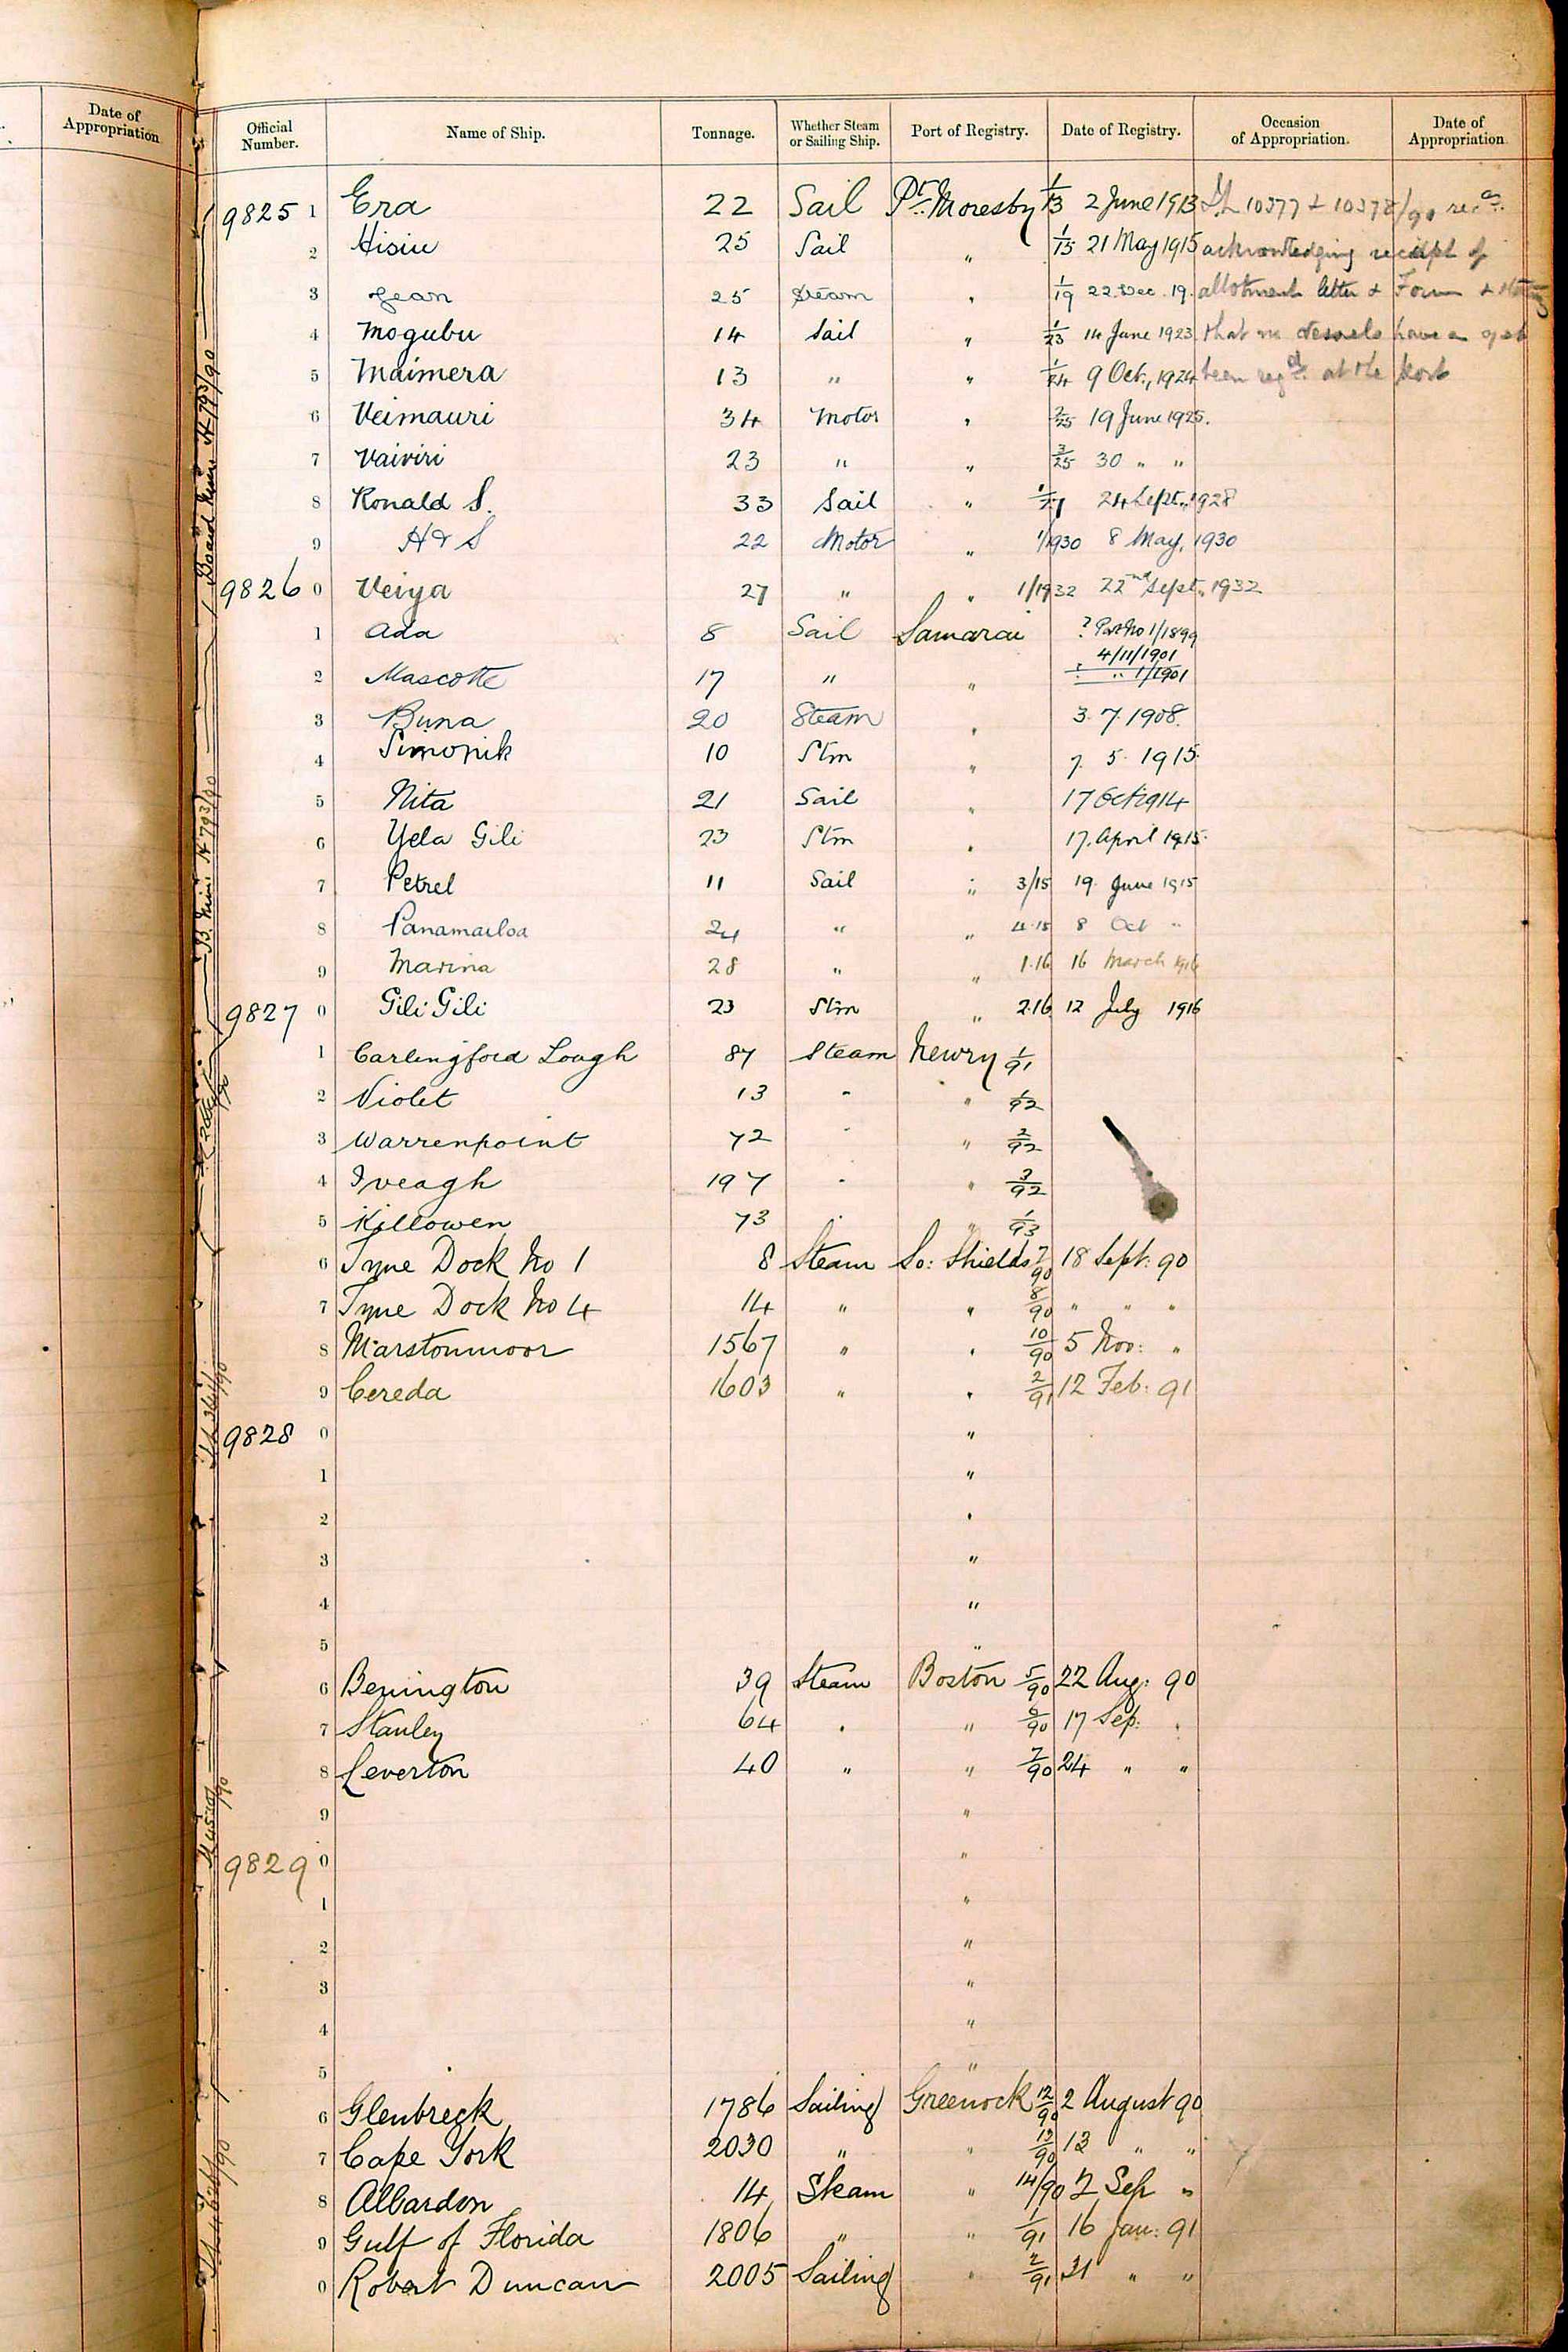 Date of
Appropriation
Official Number. Name of Ship. Tonnage. Whether Steam or Sailing Ship. Port of Registry. Date of Registry. Occasion of Appropriation. Date of Appropriation
9825 1 Era 22 Sail Pt. Moresby 1/13 2 June 1913 10377 & 10378/90 recd.
2 Hisiu 25 Sail " 1/15 21 May 1915 acknowledging receipt of
3 Jean 25 Steam " 1/19 22 Dec. 19. allotment letter & Form &
4 Mogubu 14 Sail " 1/23 14 June 1923. that no vessels have as yet
5 Maimera 13 " " 1/24 9 Oct., 1924 been regd. at the port
6 Veimauri 34 Motor " 2/25 19 June 1925.
7 Vaiviri 23 " " 3/25 30 " "
8 Ronald S. 33 Sail " 24 Sept., 1928
9 H & S 22 Motor " 1/1930 8 May, 1930
9826 0 Veiya 27 " " 1/1932 22nd Sept., 1932
1 Ada 8 Sail Samarai ? Port No 1/1899
4/11/1901
2 Mascotte 17 " " " 1/1901
3 Buna 20 Steam " 3. 7. 1908.
4 Simopik 10 Stm " 7. 5. 1915.
5 Nita 21 Sail " 17 Oct 1914
6 Yela Gili 23 Stm " 17. April 1915.
7 Petrel 11 Sail " 3/15 19. June 1915
8 Panamailoa 24 " " 4.15 8 Oct "
9 Marina 28 " " 1.16 16 March 1916
9827 0 Gili Gili 23 Stm " 2.16 12 July 1916
1 Carlingford Lough 87 Steam Newry 1/91
2 Violet 13 " " 1/92
3 Warrenpoint 72 " " 2/92
4 Iveagh 197 " " 3/92
5 Killowen 73 " " 1/93
6 Tyne Dock No 1 8 Steam So: Shields 7/90 18 Sept: 90
7 Tyne Dock No 4 14 " " 8/90 " " "
8 Marstonmoor 1567 " " 10/90 5 Nov: "
9 Cereda 1603 " " 2/91 12 Feb: 91
9828 0 "
1 "
2 "
3 "
4 "
5 "
6 Benington 39 Steam Boston 5/90 22 Aug: 90
7 Stanley 64 " " 6/90 17 Sep: "
8 Leverton 40 " " 7/90 24 " "
9 "
9829 0 "
1 "
2 "
3 "
4 "
5 "
6 Glenbreck 1786 Sailing Greenock 12/90 2 August 90
7 Cape York 2030 " " 13/90 13 " "
8 Albardon 14 Steam " 14/90 2 Sep "
9 Gulf of Florida 1806 " " 1/91 16 Jan: 91
0 Robert Duncan 2005 Sailing " 2/91 31 " "